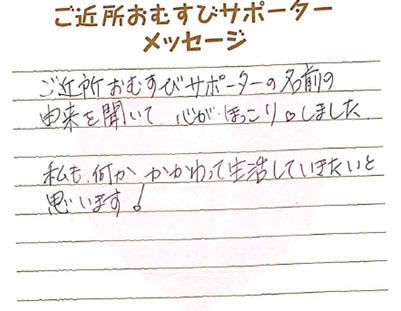 ご近所おむすびサポーター
メッセージ
ご近所おむすびサポーターの名前の
由来を聞いて 心がほっこり♡しました
私も何かかかわって生活していきたいと
思います!